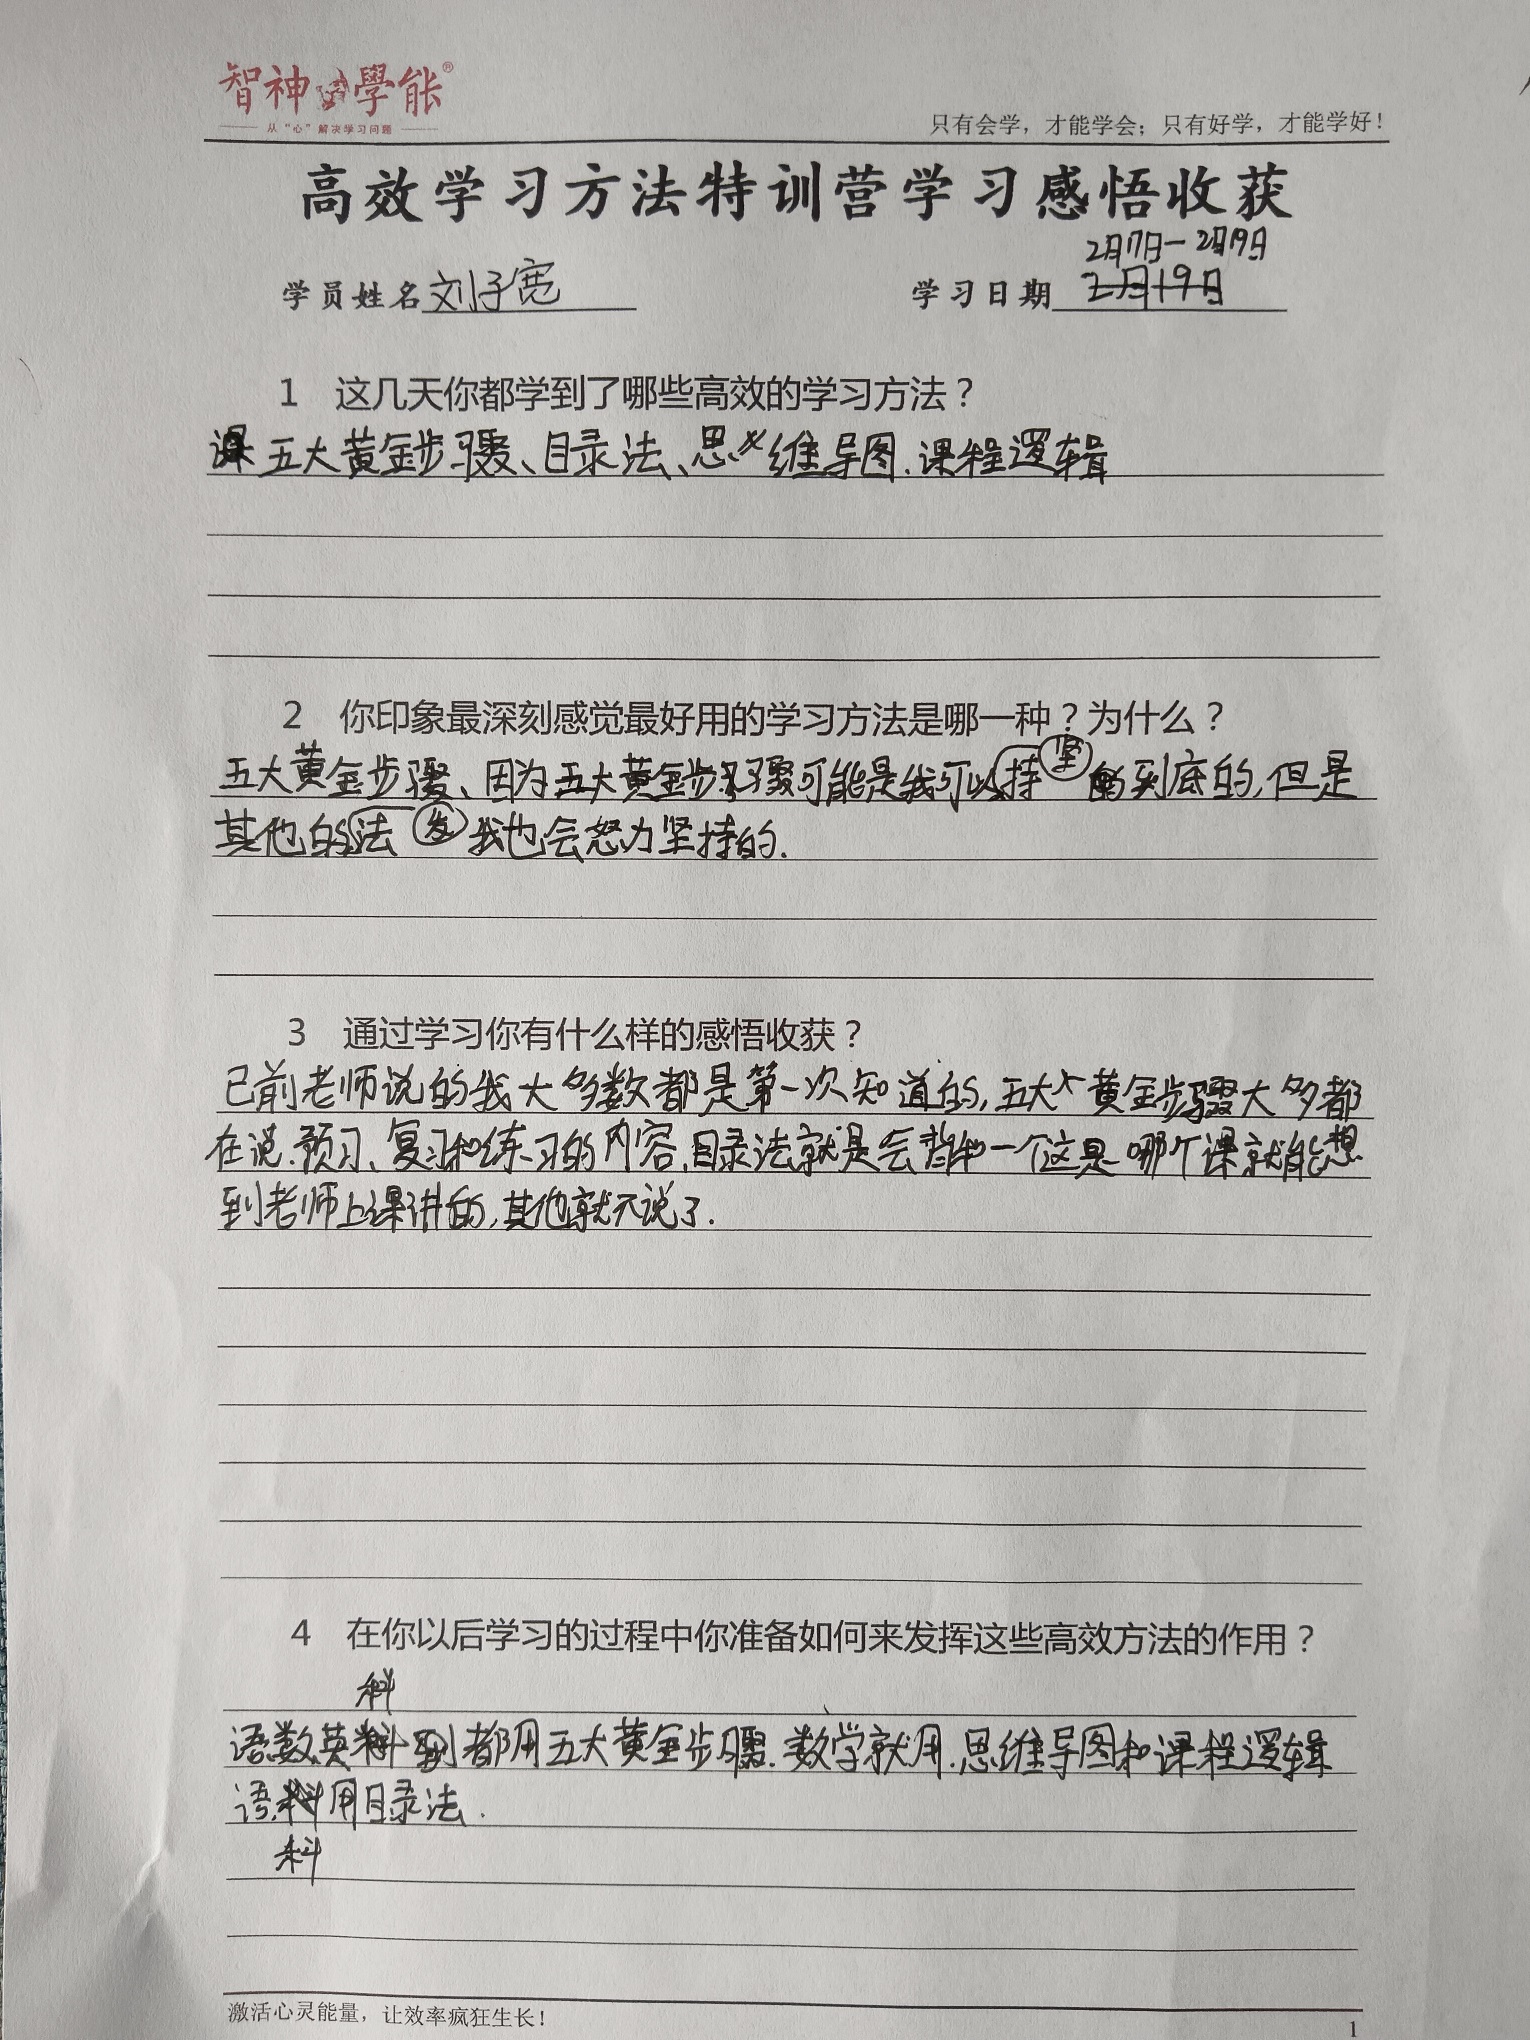 智神学能®
从“心”解决学习问题
只有会学，才能学会；只有好学，才能学好！
高效学习方法特训营学习感悟收获
2月17日—2月19日
学员姓名 刘子宽 学习日期 2月19日
1 这几天你都学到了哪些高效的学习方法？
课 五大黄金步骤、目录法、思维导图、课程逻辑
2 你印象最深刻感觉最好用的学习方法是哪一种？为什么？
五大黄金步骤、因为五大黄金步骤可能是我可以持坚 到底的，但是
其他的法 我也会努力坚持的.
3 通过学习你有什么样的感悟收获？
已前老师说的我大多数都是第一次知道的，五大黄金步骤大多都
在说.预习、复习和练习的内容，目录法就是会背和一个这是哪个课就能想
到老师上课讲的，其他就不说了.
4 在你以后学习的过程中你准备如何来发挥这些高效方法的作用？
科
语数英 都用五大黄金步骤.数学就用.思维导图和课程逻辑
语 用目录法.
科
激活心灵能量，让效率疯狂生长！
1